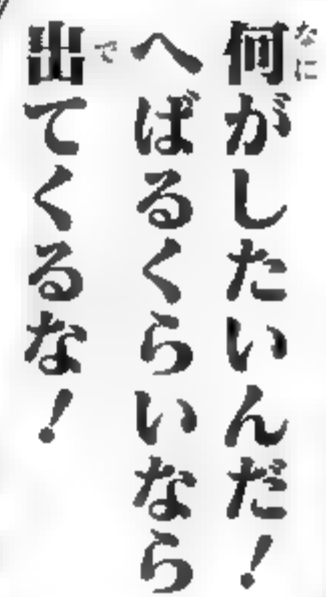 何がしたいんだ！
へばるくらいなら
出てくるな！